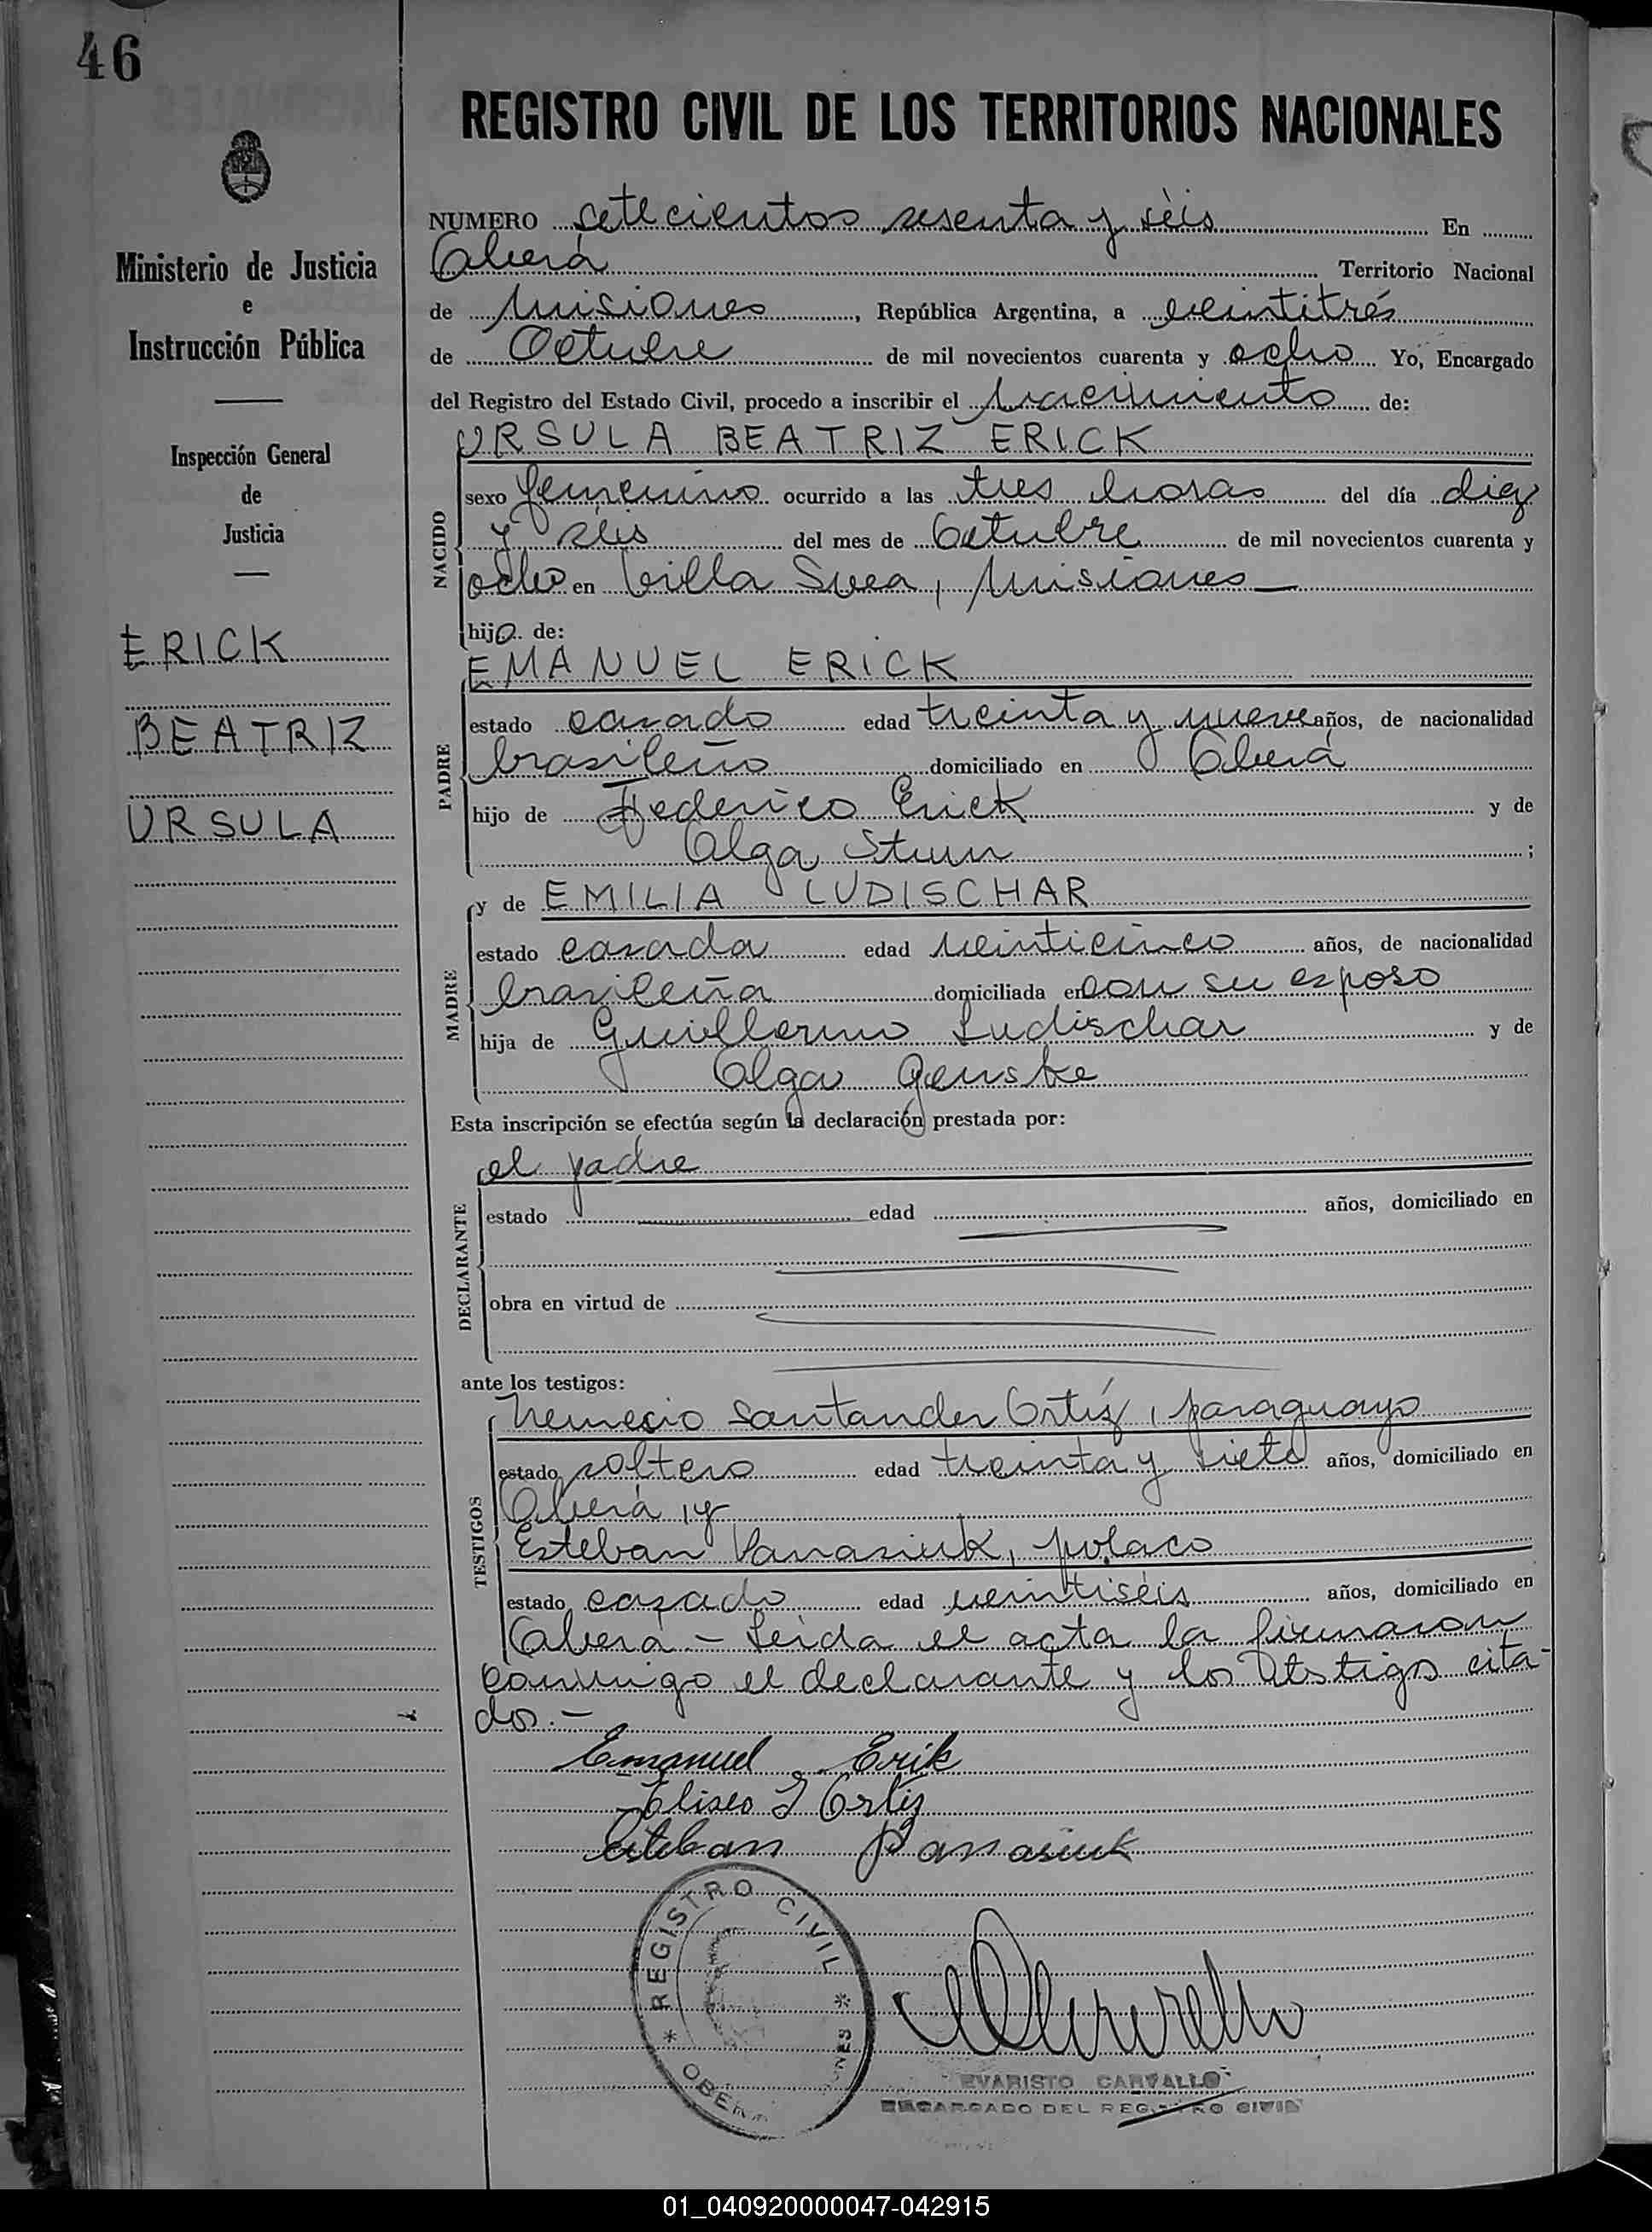 46
REGISTRO CIVIL DE LOS TERRITORIOS NACIONALES
Ministerio de Justicia
e
Instrucción Pública
Inspección General
de
Justicia
ERICK
BEATRIZ
URSULA
NUMERO setecientos sesenta y séis En
Oberá Territorio Nacional
de Misiones, República Argentina, a veintitrés
de Octubre de mil novecientos cuarenta y ocho Yo, Encargado
del Registro del Estado Civil, procedo a inscribir el nacimiento de:
NACIDO
URSULA BEATRIZ ERICK
sexo femenino ocurrido a las tres horas del día diez
y séis del mes de Octubre de mil novecientos cuarenta y
ocho en Villa Svea, Misiones
hija de:
PADRE
EMANUEL ERICK
estado casado edad treinta y nueve años, de nacionalidad
brasileño domiciliado en Oberá
hijo de Federico Erick y de
Olga ;
MADRE
y de EMILIA LUDISCHAR
estado casada edad veinticinco años, de nacionalidad
brasileña domiciliada en con su esposo
hija de Guillermo Ludischar y de
Olga
Esta inscripción se efectúa según la declaración prestada por:
DECLARANTE
el padre
estado edad años, domiciliado en
obra en virtud de
ante los testigos:
TESTIGOS
Nemecio Santander Ortíz, paraguayo
estado soltero edad treinta y siete años, domiciliado en
Oberá y
Esteban Panasiuk, polaco
estado casado edad veintiséis años, domiciliado en
Oberá - Leída el acta la firmaron
conmigo el declarante y los testigos cita-
dos.-
Emanuel Erik
Ortiz
Esteban Panasiuk
* REGISTRO CIVIL *
OBERA
EVARISTO CARVALLO
ENCARGADO DEL REGISTRO CIVIL
01_040920000047-042915